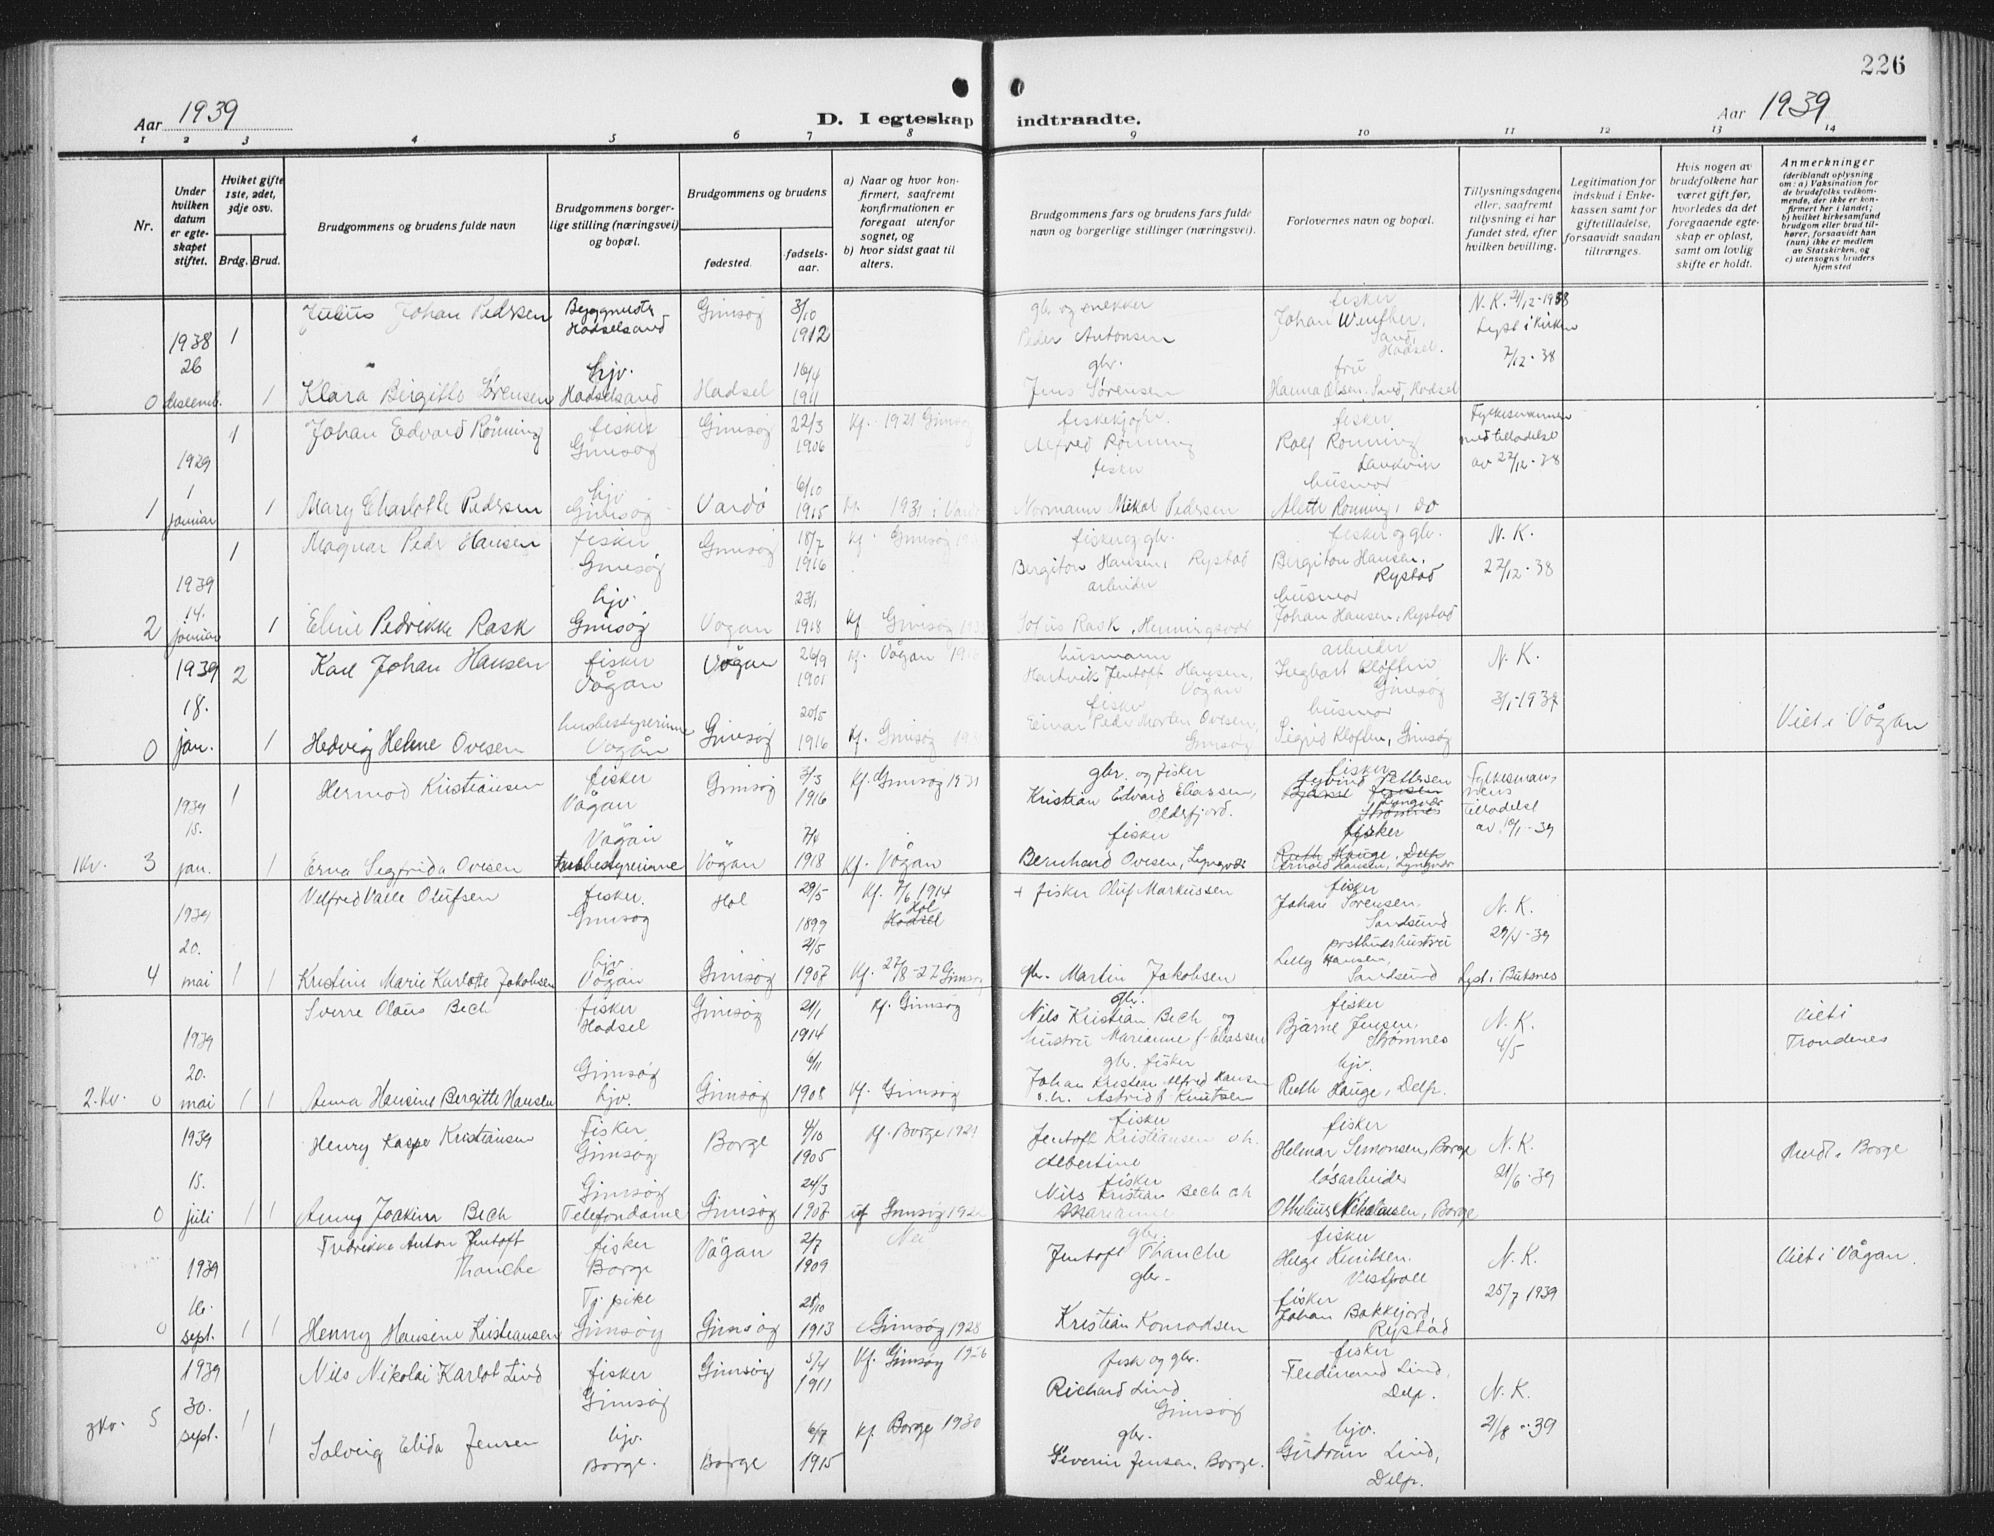 226
Aar 1939
D. I egteskap indtraadte.
Aar 1939
1 2 3 4 5 6 7 8 9 10 11 12 13 14
Nr.
Under hvilken datum er egteskapet stiftet.
Hviket gifte 1ste, 2det, 3dje osv.
Brdg. Brud.
Brudgommens og brudens fulde navn
Brudgommens borgerlige stilling (næringsvei) og bopæl.
Brudgommens og brudens
fødested.
fødselsaar.
a) Naar og hvor konfirmert, saafremt konfirmationen er foregaat utenfor sognet, og
b) hvor sidst gaat til alters.
Brudgommens fars og brudens fars fulde navn og borgerlige stillinger (næringsvei).
Forlovernes navn og bopæl.
Tillysningsdagene eller, saafremt tillysning ei har fundet sted, efter hvilken bevilling.
Legitimation for indskud i Enkekassen samt for giftetilladelse, forsaavidt saadan tiltrænges.
Hvis nogen av brudefolkene har været gift før, hvorledes da det foregaaende egteskap er opløst, samt om lovlig skifte er holdt.
Anmerkninger
(deriblandt oplysning om: a) Vaksination for de brudefolks vedkommende, der ikke er konfirmert her i landet; b) hvilket kirkesamfund brudgom eller brud tilhører, forsaavidt han (hun) ikke er medlem av Statskirken, og c) utensogns bruders hjemsted
1938 26 desemb.
1 Julius Johan Pedersen Hadselsand Gimsøy 3/10 1912
gbr og snekker
Peder Antonsen
fisker
Johan
Sand, Hadsel.
N. K. 21/12-1938
Lyst i Kirken
7/12-38
0 1 Klara Birgitte Sørensen hjv. Hadselsand Hadsel 16/4 1911
gbr. Jens Sørensen
fru
Hanna Olsen, Sand, Hadsel
1 Johan Edvard Rönning fisker Gimsøy Gimsøy 22/3 1906 Kf. 1921 Gimsøy
Alfred Rønning
fisker
Rolf Rønning
Fylkesmannen
med tilladelse
av 22/12-38
1929 1 januar
1 1 Mary Charlotte Pedersen hjv Gimsøy Vardö 6/10 1915 Kf. 1931 i Vardö
fisker
Normann Mikal Pedersen
husmor
Alette Rønning, Do
1 Magnar Peder Hansen fisker Gimsøy Gimsøy 18/7 1916 Kf. Gimsøy
fisker og gbr.
Bergiton Hansen, Rystad
fisker og gbr.
Bergiton Hansen, Rystad
N. K.
22/12-38
1939 14. januar
2 1 Eline Pedrikke Rask hjv. Gimsøy Vogan 23/1 1918 Kf Gimsøy
arbeider
Rask, Henningsvær
husmor
Johan Hansen, Rystad
1939 18. jan.
2 Karl Johan Hansen fisker Vågan Vågan 26/9 1901 Kf. Vågan
husmann
Hartvik Jentoft Hansen, Vågan
arbeider
Kloften
Gimsøy
N. K.
3/1-1937
0 1 Hedvig Helene Ovesen husbestyrerinne Vågan Gimsøy 20/5 1916 Kf. Gimsøy
fisker
Einar Peder Morten Ovesen, Gimsøy
husmor
Sigrid Kloften, Gimsøy
Viet i Vågan
1939 15. jan.
1 Hermod Kristiansen fisker Vågan Gimsøy 3/3 1916 Kf. Gimsøy 1931
gbr. og fisker
Kristian Edvard Eliassen, Oldefjord.
fisker
Eyvind Pettersen
Bjarne Jensen
Lyngvær
Strømnes
Fylkesmannens
tilladelse
av 10/1-39
1 Kv. 3 1 Erna Segfrida Ovesen Vågan husbestyrerinne Vågan 7/4 1918 Kf. Vågan
fisker
Bernhard Ovesen, Lyngvær
fisker
Ruth Hauge, Delp
Arnold Hansen, Lyngvær
1939 20. mai
1 Vilfred Valle Olufsen fisker. Gimsøy Hol 29/5 1899 Kf. 7/6 1914 Hol Hadsel
+ fisker Oluf Markussen
fisker
Johan Sørensen,
Sandsund
N. K.
29/4-39
4 1 Kristine Marie Karlotte Jakobsen hjv Vågan Gimsøy 21/5 1907 Kf. 27/8-22 Gimsøy
gbr. Martin Jakobsen
Lilly Hansen,
Sandsund
Lyst i Buksnes
1939 20. mai
1 Sverre Olaus Bech fisker Hadsel Gimsøy 21/1 1914 Kf. Gimsøy
gbr.
Nils Kristian Bech og
hustru Marianne f. Eliassen
fisker
Bjarne Jensen,
Strømnes
N. K.
4/5
Viet i
Trondenes
2. Kv. 0 1 Anna Hansine Bergitte Hansen Gimsøy hjv. Gimsøy 6/11 1908 Kf. Gimsøy
gbr. fisker
Johan Kristian Alfred Hansen
o.h. Astrid f. Knutsen
hjv.
Ruth Hauge, Delp.
1939 15. juli
1 Henry Kaspe Kristiansen Fisker Gimsøy Borge 4/10 1905 Kf. Borge 1921
fisker
Jentoft Kristiansen o.h.
Albertine
fisker
Helmar Simonsen, Borge
N. K.
21/6-39
Borge
0 1 Anny Joakim Bech Gimsøy Telefondame Gimsøy 24/3 1907 Kf Gimsøy 192
fisker
Nils Kristian Bech o h
Marianne
løsarbeider
Othelius Nikolaisen, Borge
1939 16. sept.
1 Fredrikke Anton Jentoft Thanche fisker Borge Vågan 2/7 1909 Nei
gbr.
Jentoft Thanche
fisker
Helge Knutsen.
Vestpoll
N. K.
25/7 1939
Viet i Vågan.
0 1 Henny Hansine Kristiansen Tj. pike Gimsøy Gimsøy 25/10 1913 Gimsøy 1928
gbr.
Kristian Konradsen
fisker
Johan Bakkejord,
Rystad
1939 30. sept.
1 Nils Nikolai Karlot Lind fisker Gimsøy Gimsøy 5/4 1911 Kf. Gimsøy 1926
fisk og gbr.
Richard Lind
Gimsøy
fisker
Ferdinand Lind,
Delp.
N. K.
21/8-39
3 Kv. 5 1 Solveig Elida Jensen hjv. Borge. Borge 6/7 1915 Kf Borge 1930
gbr.
Severin Jensen, Borge.
hjv.
Gudrun Lind,
Delp.